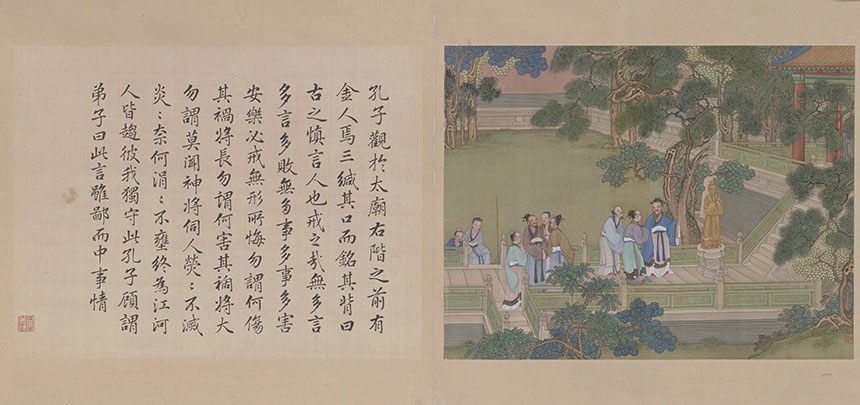 孔子觀於太廟右階之前有
金人焉三緘其口而銘其背曰
古之慎言人也戒之哉無多言
多言多敗無多事多事多害
安樂必戒無形所悔勿謂何傷
其禍將長勿謂何害其禍將大
勿謂莫聞神將伺人熒〻不滅
炎〻奈何涓〻不壅終為江河
人皆趨彼我獨守此孔子顧謂
弟子曰此言雖鄙而中事情